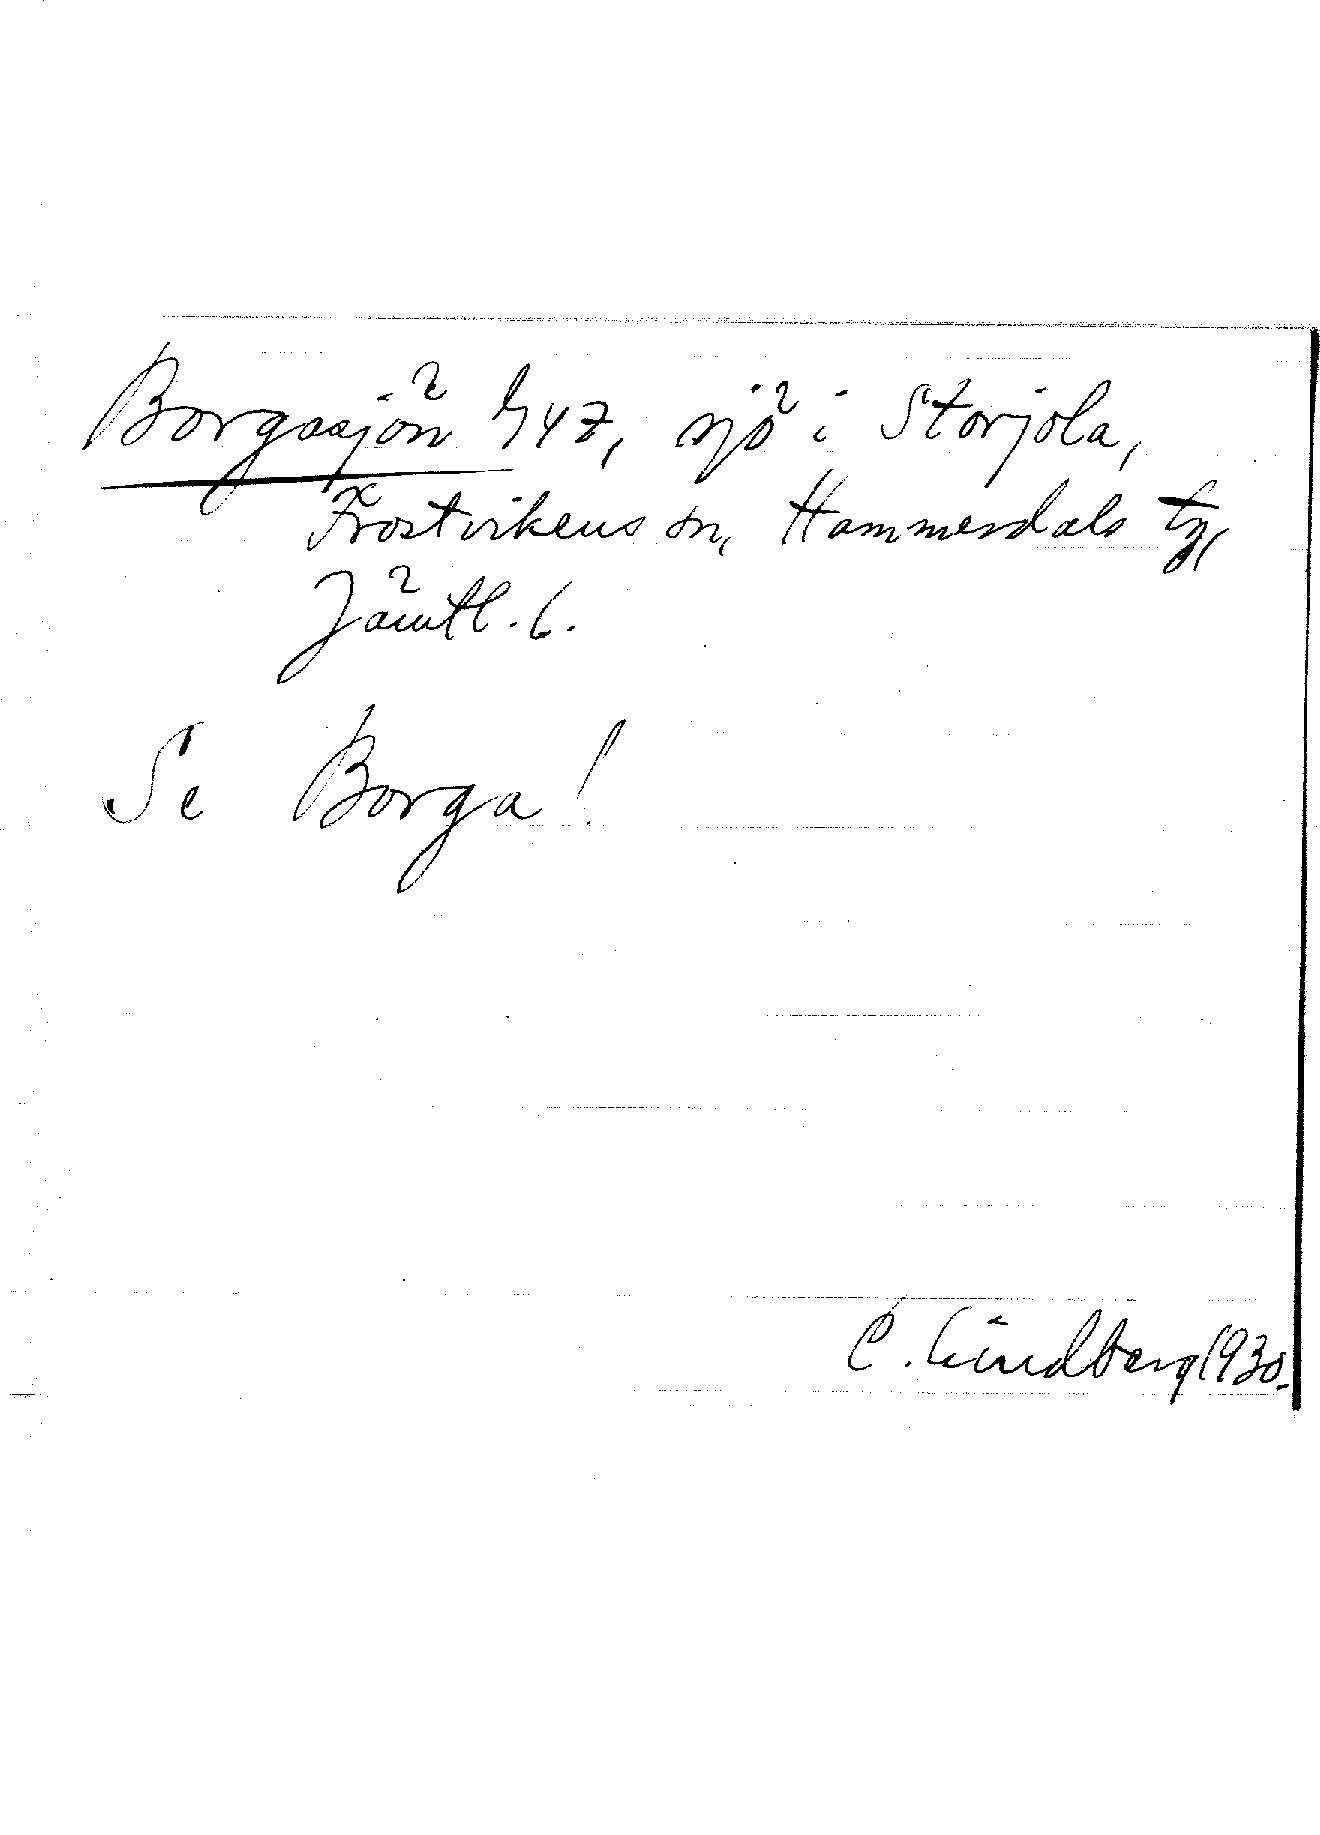 Borgasjön 447, sjö i Storjola,
Frostvikens sn, Hammerdals tg,
Jämtl. l.
Se Borga!
C. Lindberg 1930.